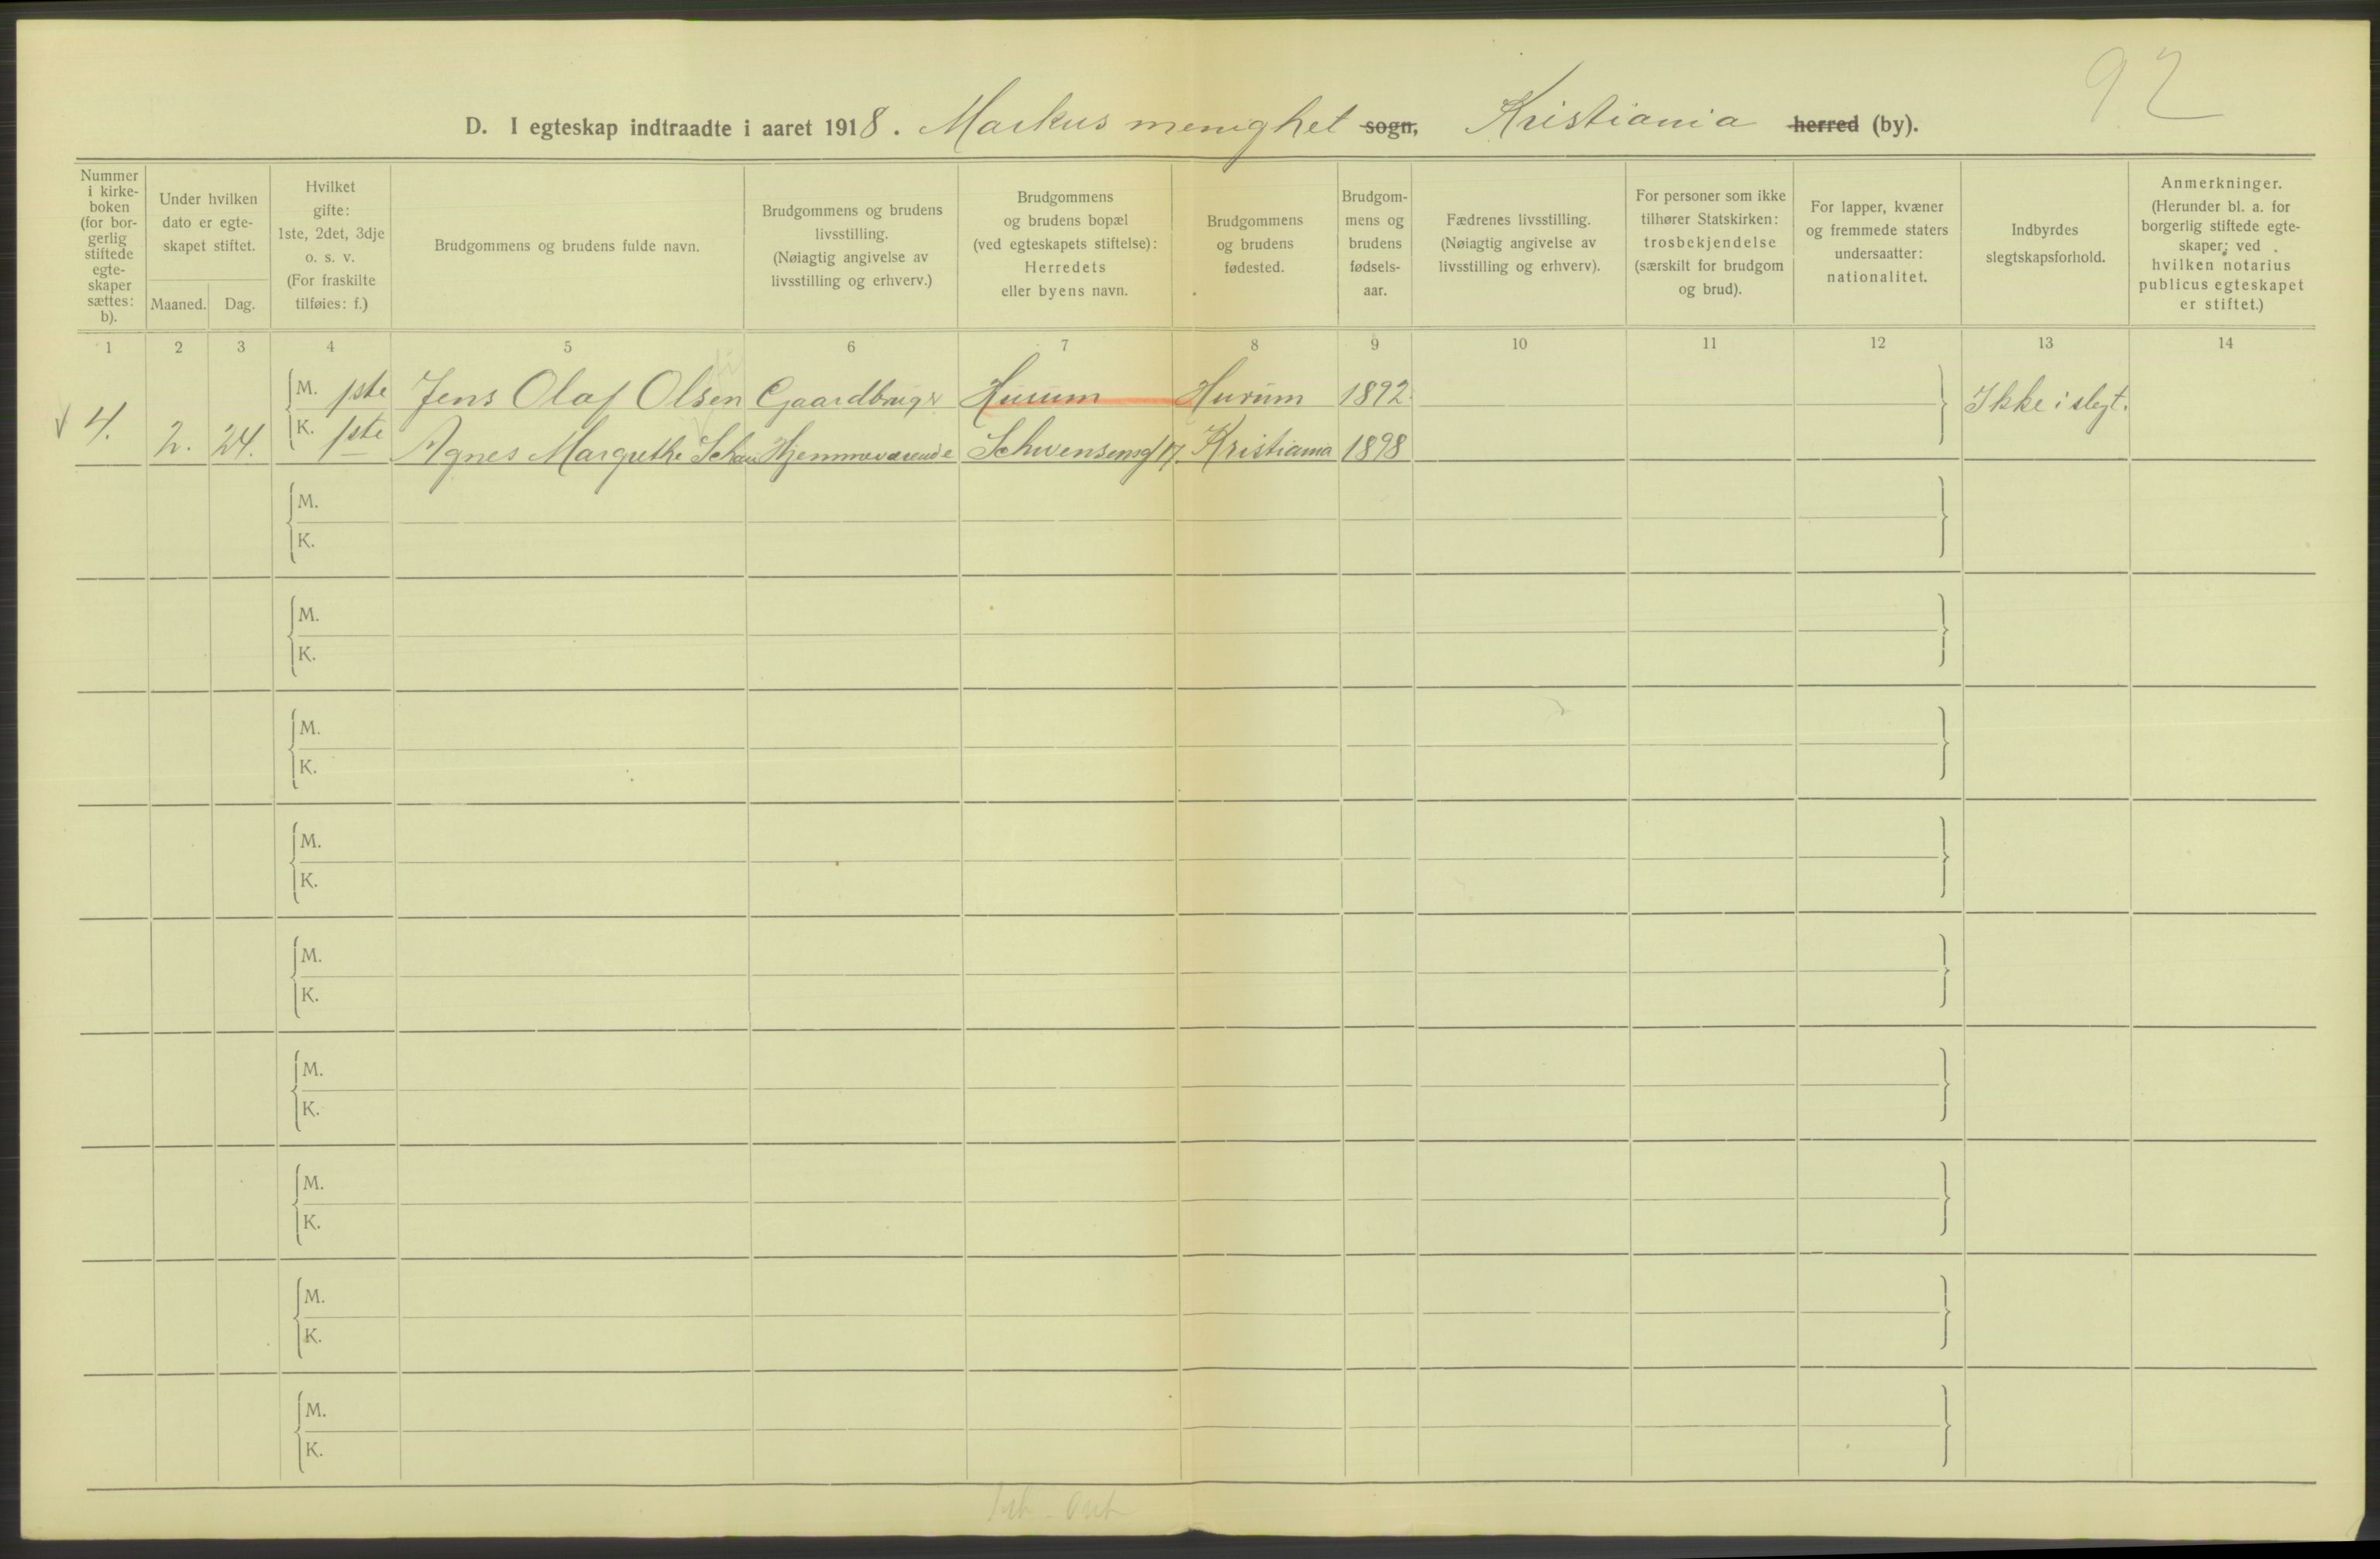 92
D. I egteskap indtraadte i aaret 1918. Markus menighet sogn, Kristiania herred (by).
Nummer i kirke- boken (for bor- gerlig stiftede egte- skaper sættes: b).
Under hvilken dato er egte- skapet stiftet.
Maaned. Dag.
Hvilket gifte: 1ste, 2det, 3dje o. s. v. (For fraskilte tilføies: f.)
Brudgommens og brudens fulde navn.
Brudgommens og brudens livsstilling. (Nøiagtig angivelse av livsstilling og erhverv.)
Brudgommens og brudens bopæl (ved egteskapets stiftelse): Herredets eller byens navn.
Brudgommens og brudens fødested.
Brudgom- mens og brudens fødsels- aar.
Fædrenes livsstilling. (Nøiagtig angivelse av livsstilling og erhverv).
For personer som ikke tilhører Statskirken: trosbekjendelse (særskilt for brudgom og brud).
For lapper, kvæner og fremmede staters undersaatter: nationalitet.
Indbyrdes slegtskapsforhold.
Anmerkninger. (Herunder bl. a. for borgerlig stiftede egte- skaper: ved hvilken notarius publicus egteskapet er stiftet.)
1 2 3 4 5 6 7 8 9 10 11 12 13 14
M. 1ste Jens Olaf Olsen Gaardbruger Hurum Hurum 1892. Ikke i slegt.
4. 2. 24. K. 1ste Agnes Margrethe Schau Hjemmeværende Schwensensg 17 Kristiania 1898
M.
K.
M.
K.
M.
K.
M.
K.
M.
K.
M.
K.
M.
K.
M.
K.
M.
K.